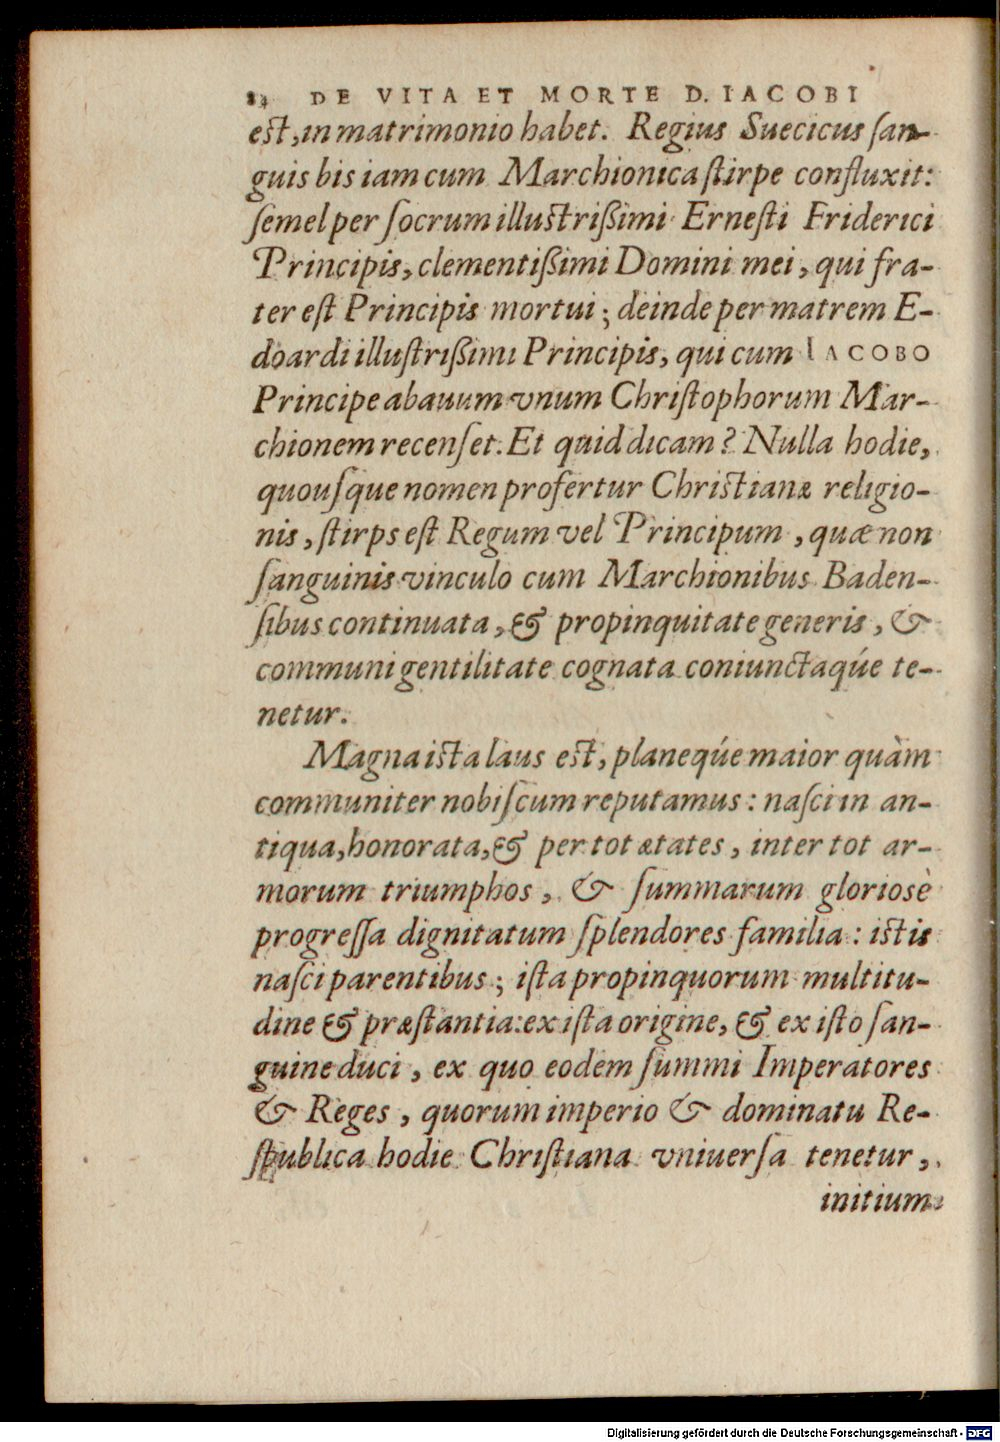 84 DE VITA ET MORTE D. IACOBI
est, in matrimonio habet. Regius Suecicus ſan-
guis bis iam cum Marchionica ſtirpe confluxit:
ſemel per ſocrum illuſtrißimi Erneſti Friderici
Principis, clementißimi Domini mei, qui fra-
ter eſt Principis mortui; deinde per matrem E-
doardi illuſtrißimi Principis, qui cum IACOBO
Principe abauum vnum Chriſtophorum Mar-
chionem recenſet. Et quid dicam? Nulla hodie,
quouſque nomen profertur Chriſtianæ religio-
nis, ſtirps eſt Regum vel Principum, quæ non
ſanguinis vinculo cum Marchionibus Baden-
ſibus continuata, & propinquitate generis, &
communi gentilitate cognata coniunctaqúe te-
netur.
Magna iſta laus eſt, planeqúe maior quàm
communiter nobiſcum reputamus: naſci in an-
tiqua, honorata, & per tot ætates, inter tot ar-
morum triumphos, & ſummarum glorioſè
progreſſa dignitatum ſplendores familia: iſtis
naſci parentibus; iſta propinquorum multitu-
dine & præſtantia: ex iſta origine, & ex iſto ſan-
guine duci, ex quo eodem ſummi Imperatores
& Reges, quorum imperio & dominatu Re-
ſpublica hodie Chriſtiana vniuerſa tenetur,
initium
Digitalisierung gefördert durch die Deutsche Forschungsgemeinschaft - DFG